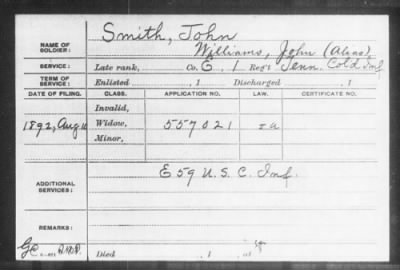 Smith, John
NAME OF SOLDIER:
Williams, John (Alias)
SERVICE: Late rank, Co. E, 1 Reg't Tenn. Cold Inf
TERM OF SERVICE: Enlisted , 1 Discharged , 1
DATE OF FILING. CLASS. APPLICATION NO. LAW. CERTIFICATE NO.
Invalid,
1892, Aug Widow, 557021
Minor,
E 59 U.S.C. Inf.
ADDITIONAL SERVICES:
REMARKS:
Died , 1 , at